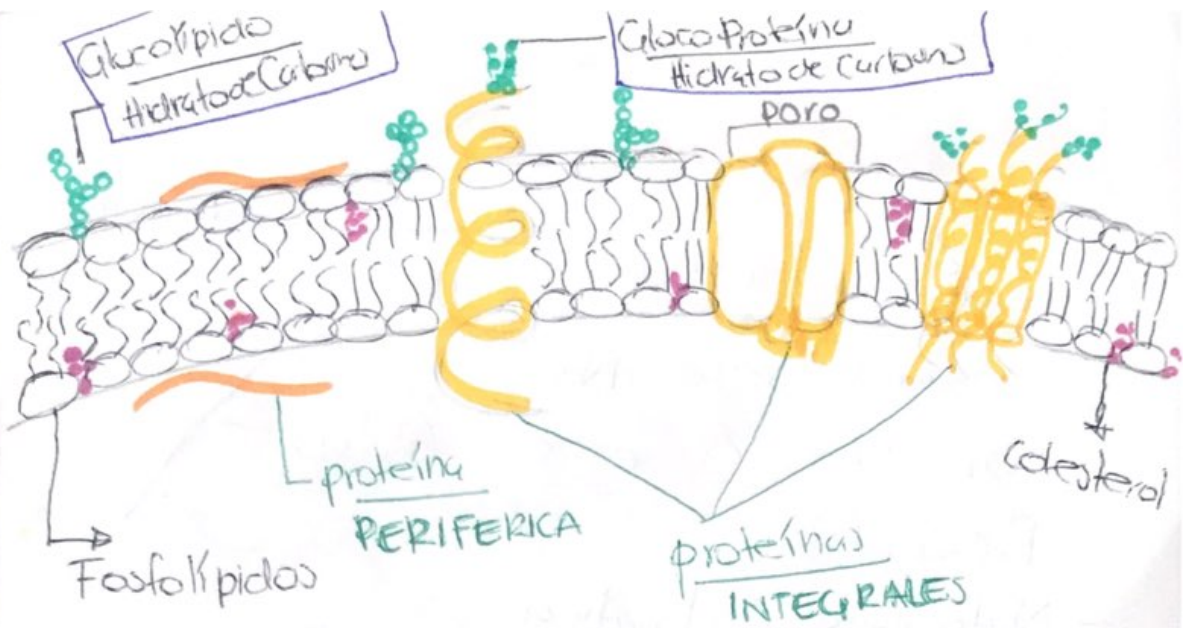 Glucolípido
Hidrato de Carbono
GlucoProteína
Hidrato de Carbono
Poro
proteína
PERIFERICA
Fosfolípidos
proteínas
INTEGRALES
Colesterol